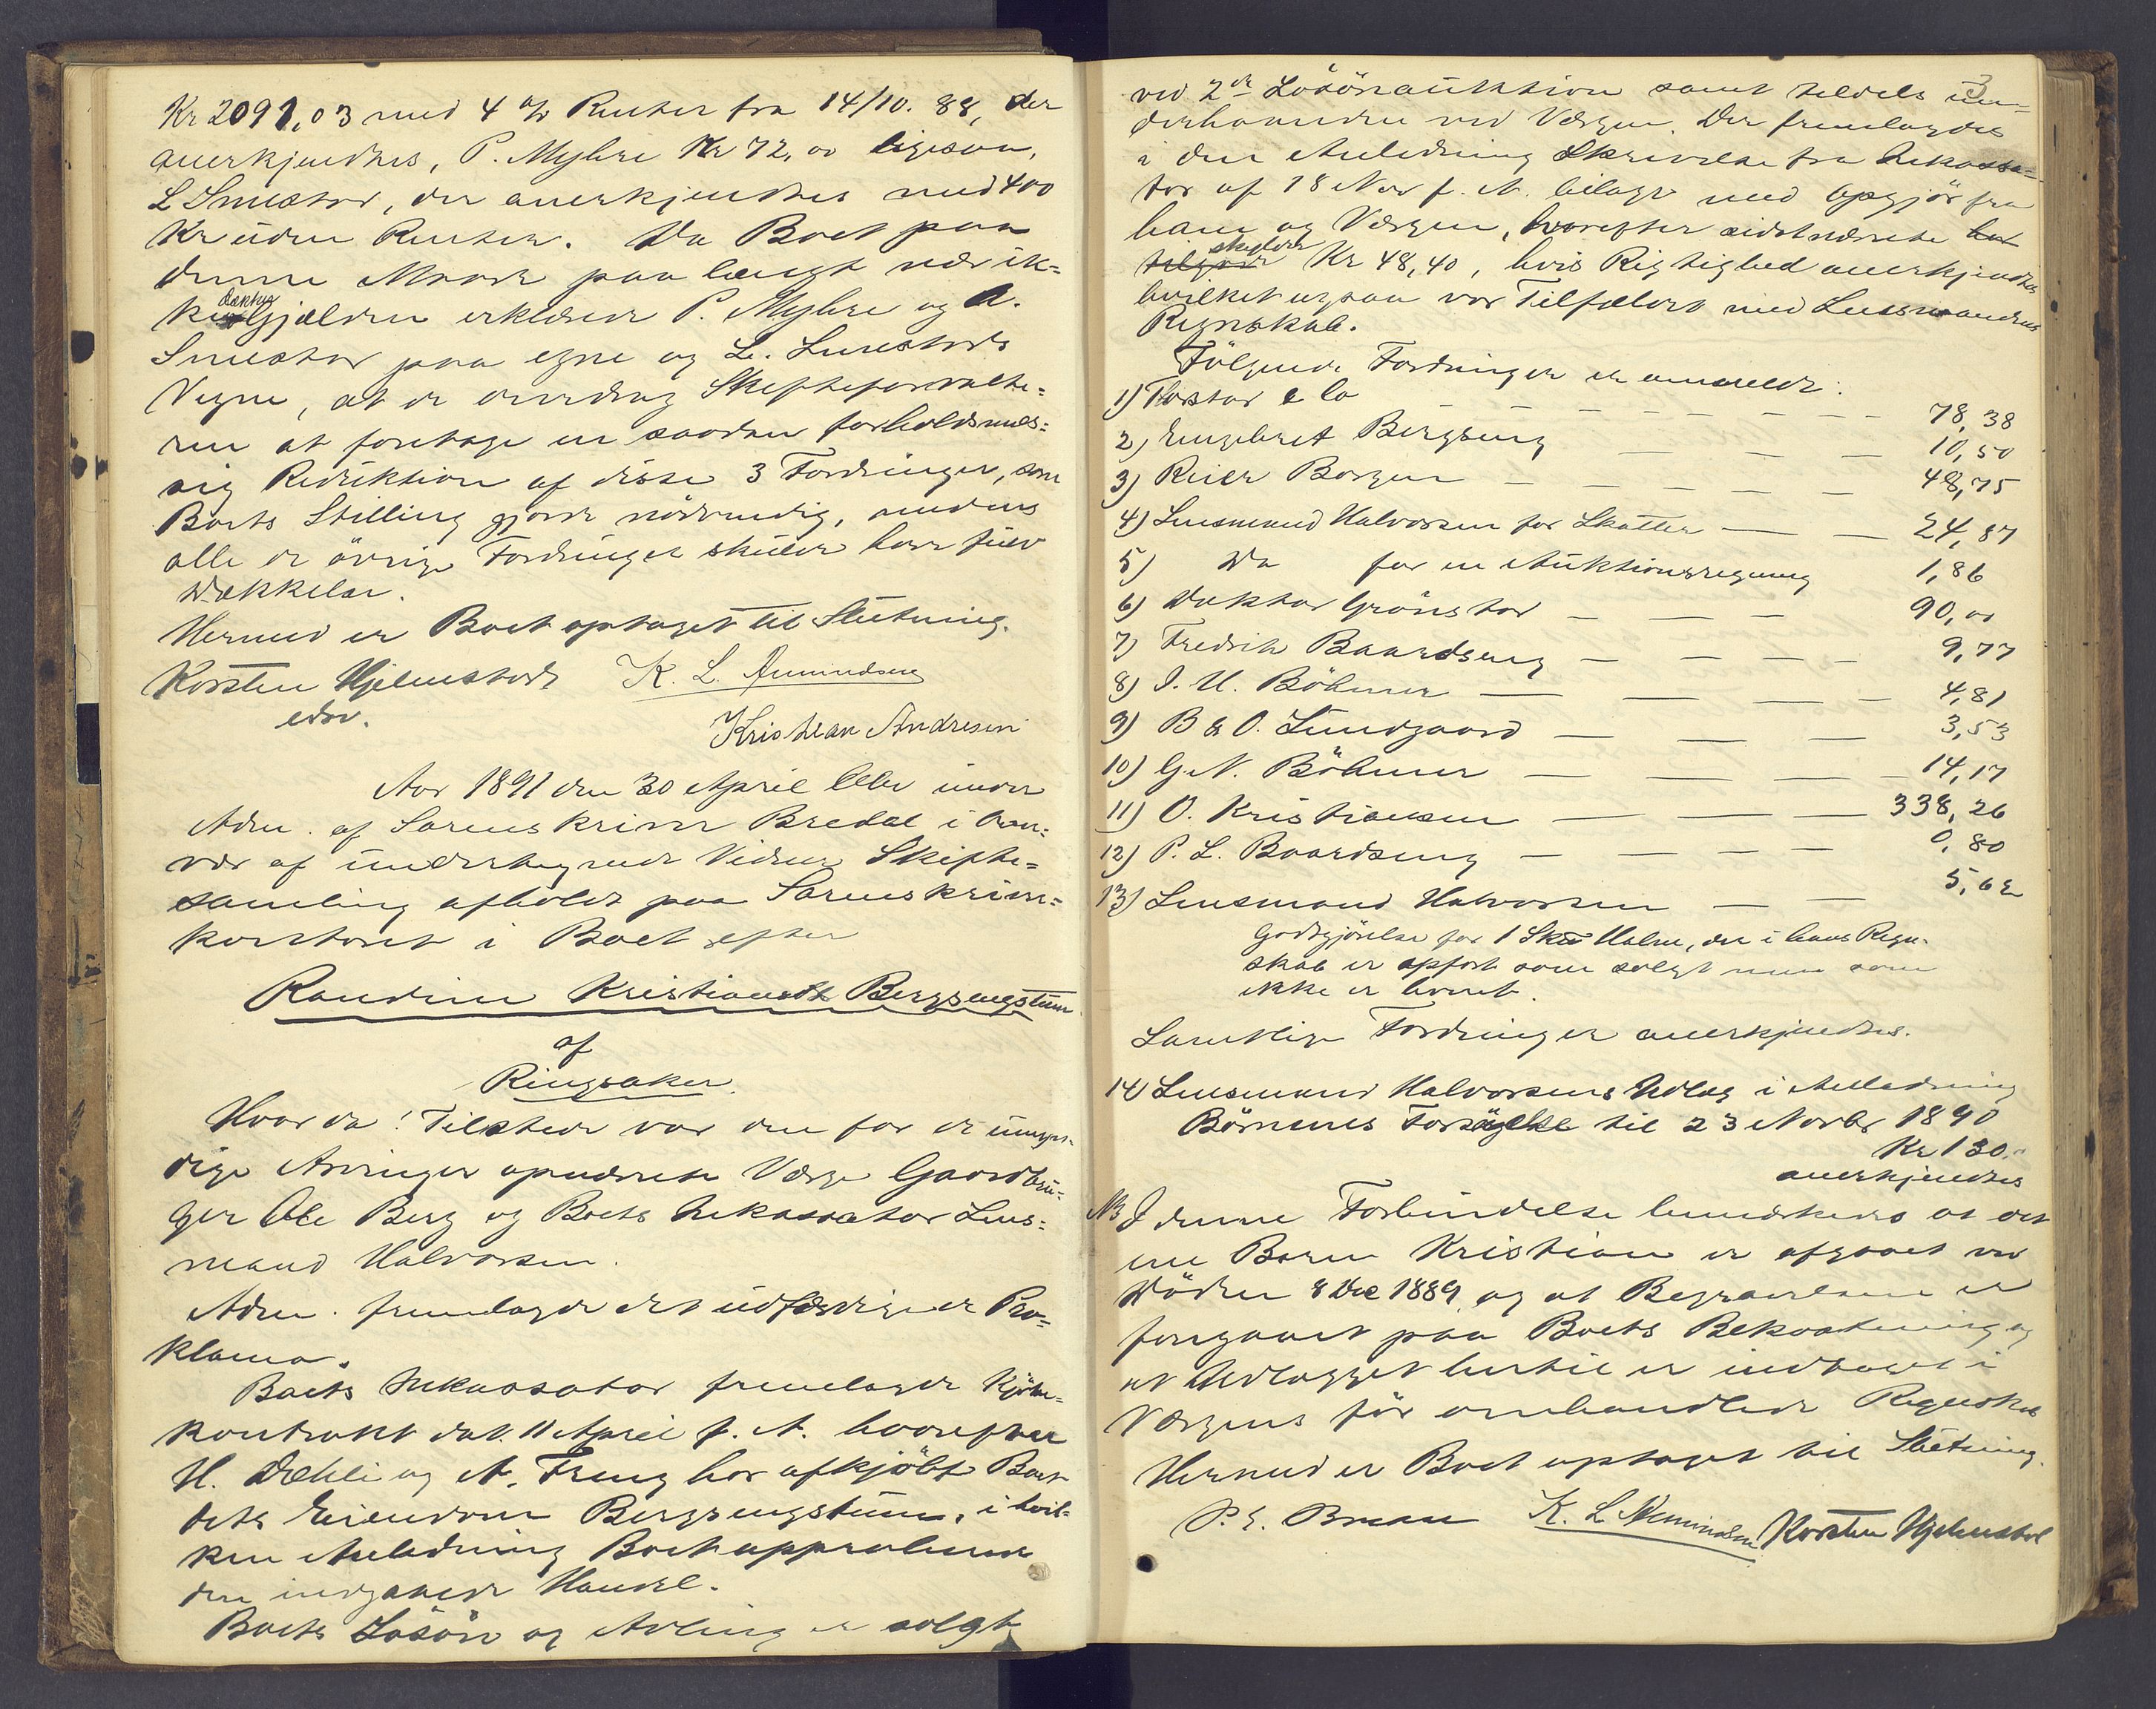 Kr 2091,03 med 4 % Renter fra 14/10. 88, der
anerkjendtes, P. Myhre Kr 72,00 ligesaa,
L Smestad, der anerkjendtes med 400
Kr uden Renter. Da Boet paa
denne Maade paa langt nær ik=
ke dækker Gjælden erklærede P. Myhre og A.
Smestad paa egne og L. Smestads
Vegne, at de overdrog Skifteforvalte=
ren at foretage en saadan forholdsmæs=
sig Reduktion af disse 3 Fordringer, som
Boets Stilling gjorde nödvendig, medens
alle de övrige Fordringer skulde have fuld
Dækkelse.
Hermed er Boet optaget til Slutning.
Korsten Hjelmstad K. L. Amundsen
edsv.
Kristian Andresen
Aar 1891 den 30 April blev under
Adm. af Sorenskriver Bredal i Over=
vær af undertegnede Vidner Skifte=
samling afholdt paa Sorenskriver=
kontoret i Boet efter
Randine Kristiansdt Bergsengstuen
af
Ringsaker.
Hvor da! Tilstede var den for de umyn=
dige Arvinger opnævnte Værge Gaardbru=
ger Ole Berg og Boets Inkassator Lens=
mand Halvorsen.
Adm. fremlagde det udfærdigede Pro=
klama.
Boets Inkassator fremlagde Kjöbe=
kontrakt dat. 11 April f. A. hvorefter
H. Dæhli og A. Freng har afkjöbt Boet
dets Eiendom Bergsengstuen, i hvil=
ken Anledning Boet approberede
den indgaaede Handel.
Boets Lösöre og Avling er solgt
3
ved 2de Lösöreauktion samt tildels un=
derhaanden ved Værgen. Der fremlagdes
i den Anledning Skrivelse fra Inkassa=
tor af 18 Nov f. A. bilagt med Opgjör fra
ham og Værgen, hvorefter sidstnævnte har
tilgode skylder Kr 48,40, hvis Rigtighed anerkjendtes
hvilket ogsaa var Tilfældet med Lensmandens
Regnskab.
Fölgende Fordringer er anmeldt:
1) Thorstad & Co — 78,38
2) Engebret Bergseng — 10,50
3) Reier Borgen — 48,75
4) Lensmand Halvorsen for Skatter — 24,87
5) Do for en Auktionsregning 1,86
6) Doktor Grönstad — 90,00
7) Fredrik Baardseng — 9,77
8) I. U. Böhmer — 4,81
9) B & O. Lundgaard — 3,53
10) G. N. Böhmer — 14,17
11) O. Kristiansen — 338,26
12) P. L. Baardseng — 0,80
13) Lensmand Halvorsen — 5,62
Godtgjörelse for 1 Skü Halm, der i hans Regn-
skab er opfört som solgt men som
ikke er leveret.
Samtlige Fordringer anerkjendtes.
14) Lensmand Halvorsens Udlæg i Anledning
Börnenes Forsörgelse til 23 Novbr 1890
Kr 130.
anerkjendtes
NB I denne Forbindelse bemærkedes at det
ene Barn Kristian er afgaaet ved
Döden 8 Dec 1889 og at Begravelsen er
foregaaet paa Boets Bekostning og
at Udlægget hertil er indtaget i
Værgens för omhandlede Regnskab
Hermed er Boet optaget til Slutning.
K. L. Amundsen Korsten Hjelmstad